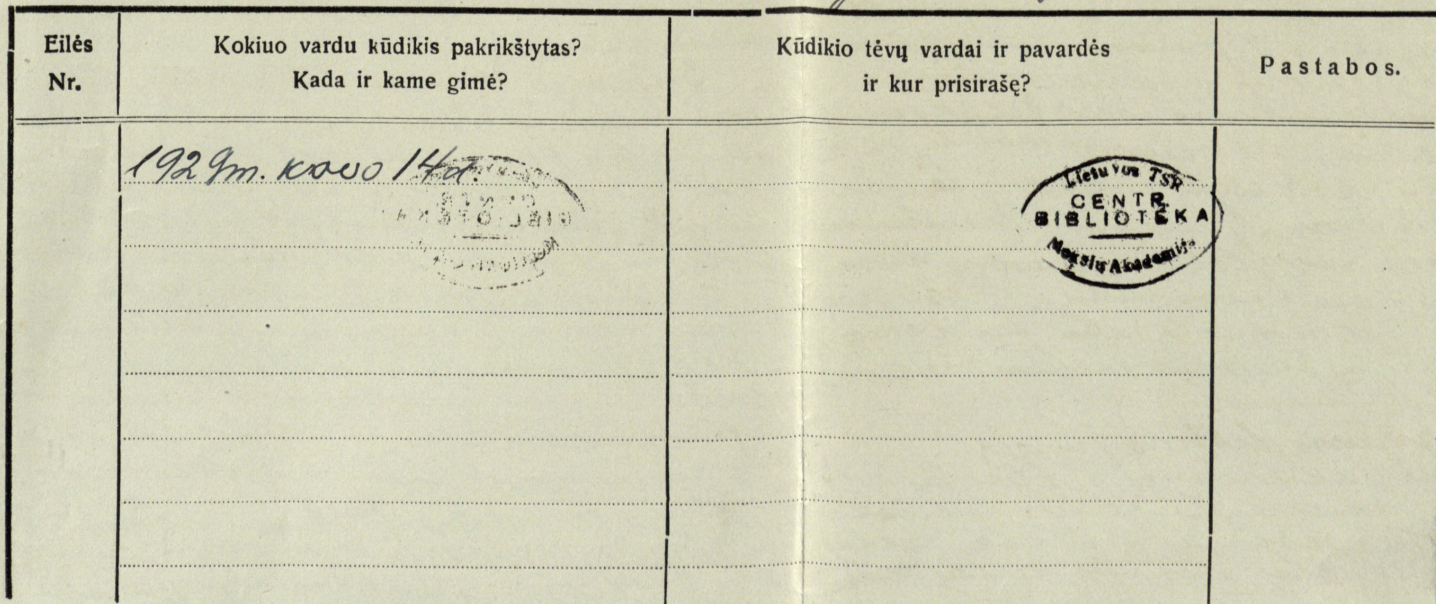 Eilės
Nr.
Kokiuo vardu kūdikis pakrikštytas?
Kada ir kame gimė?
Kūdikio tėvų vardai ir pavardės
ir kur prisirašę?
Pastabos.
1929m. kovo 14d.
Lietuvos TSR
CENTR.
BIBLIOTĖKA
Mokslų Akademija